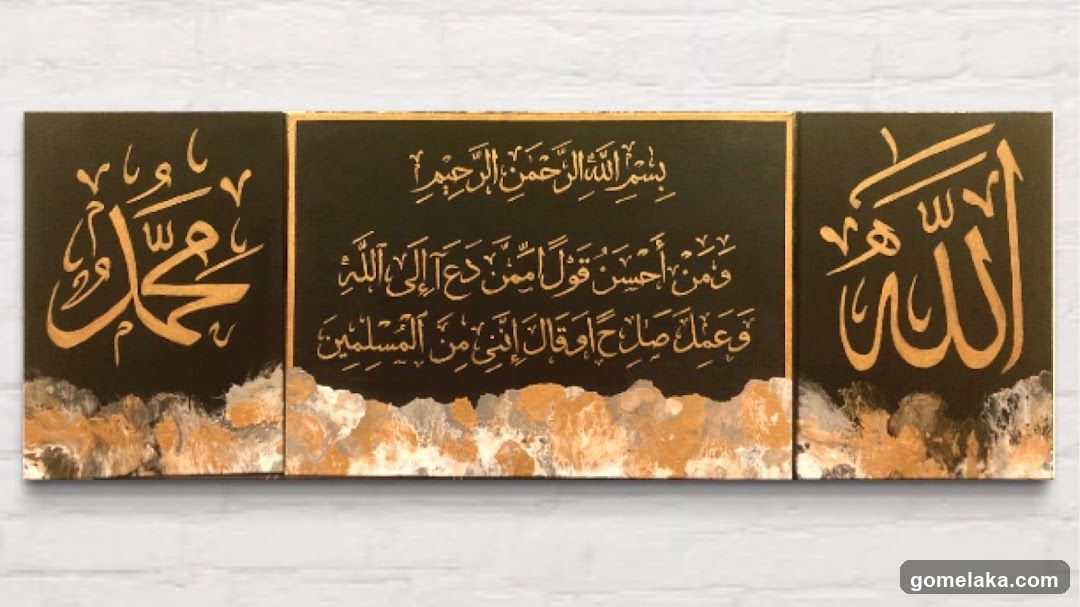 الله
بِسْمِ اللَّهِ الرَّحْمَٰنِ الرَّحِيْمِ
وَمَنْ أَحْسَنُ قَوْلًا مِّمَّن دَعَآ إِلَى ٱللَّهِ
وَعَمِلَ صَٰلِحًا وَقَالَ إِنَّنِى مِنَ ٱلْمُسْلِمِينَ
مُحَمَّد
gomelaka.com